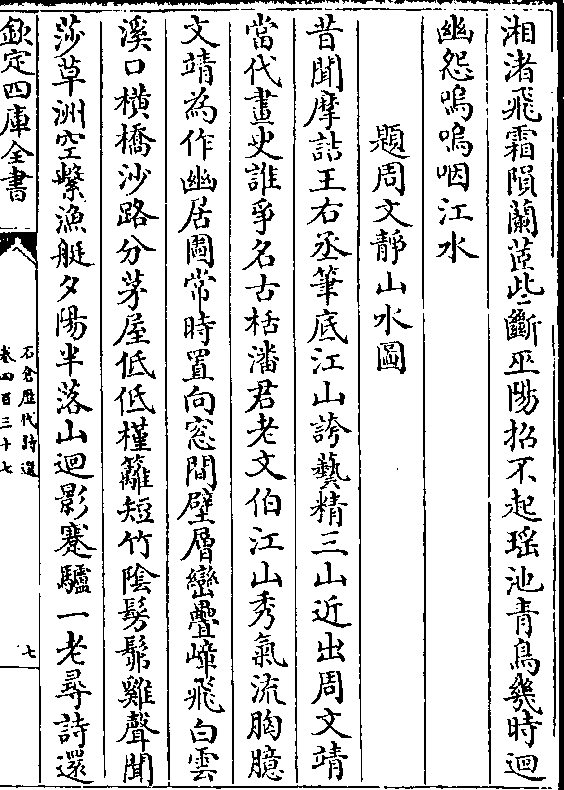 湘渚飛霜隕蘭茝些斷巫陽招不起瑶池青鳥幾時迴
幽怨嗚嗚咽江水
題周文靜山水圖
昔聞摩詰王右丞筆底江山誇藝精三山近出周文靖
當代畫史誰爭名古栝潘君老文伯江山秀氣流胸臆
文靖為作幽居圖常時置向窓間壁層巒疊嶂飛白雲
溪口横橋沙路分茅屋低低槿籬短竹陰髣髴雞聲聞
莎草洲空繫漁艇夕陽半落山迴影蹇驢一老尋詩還
欽定四庫全書
石倉歷代詩選
卷四百三十七
七